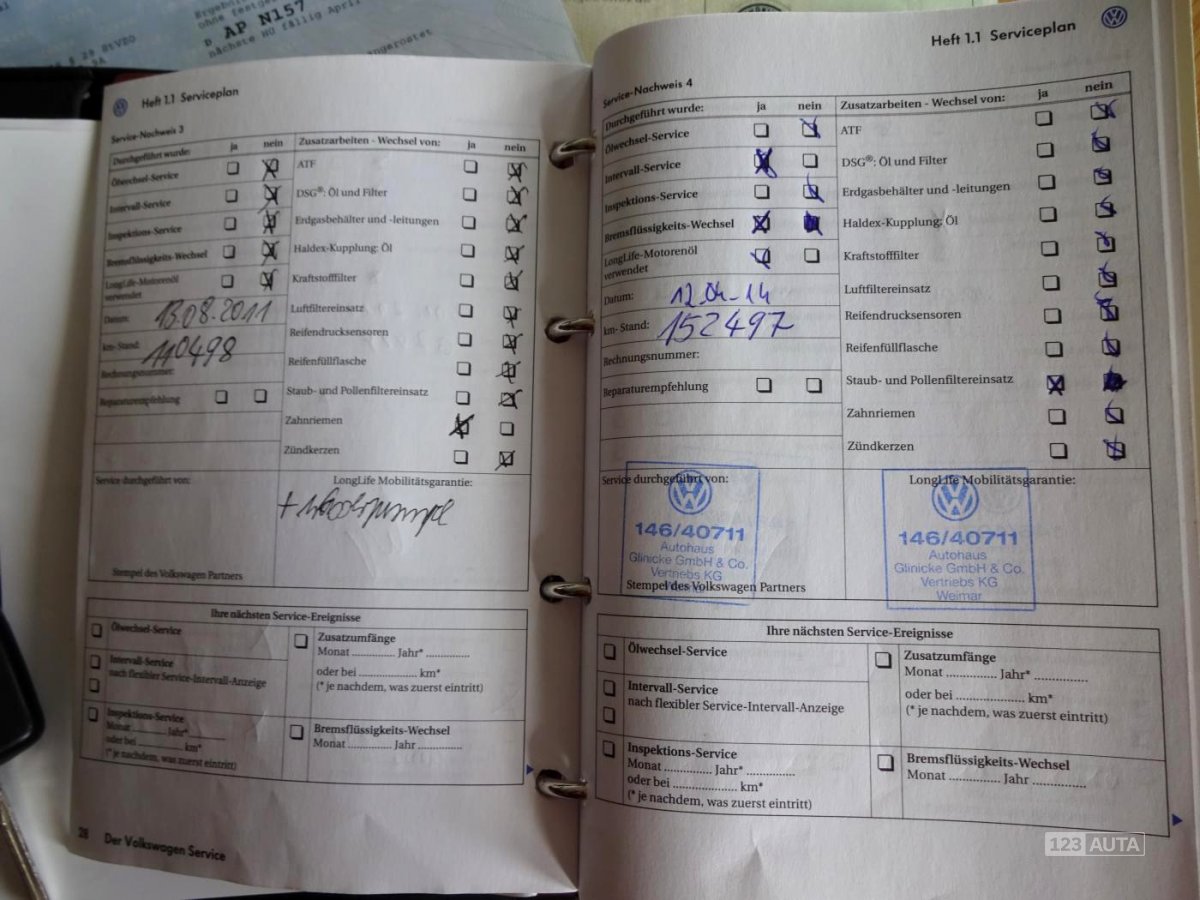 Ergebnis
ohne festge
D AP N157
nächste HU fällig April
§ 29 StVZO
angerostet
Heft 1.1 Serviceplan
Service-Nachweis 3
Durchgeführt wurde: ja nein Zusatzarbeiten - Wechsel von: ja nein
Ölwechsel-Service ATF
Intervall-Service DSG®: Öl und Filter
Inspektions-Service Erdgasbehälter und -leitungen
Bremsflüssigkeits-Wechsel Haldex-Kupplung: Öl
LongLife-Motorenöl Kraftstofffilter
verwendet
Datum: 13.08.2011 Luftfiltereinsatz
km-Stand: 110498 Reifendrucksensoren
Rechnungsnummer: Reifenfüllflasche
Reparaturempfehlung Staub- und Pollenfiltereinsatz
Zahnriemen
Zündkerzen
Service durchgeführt von: LongLife Mobilitätsgarantie:
Stempel des Volkswagen Partners
Ihre nächsten Service-Ereignisse
Ölwechsel-Service
Intervall-Service
nach flexibler Service-Intervall-Anzeige
Inspektions-Service
Monat ............ Jahr* ............
oder bei ............ km*
(* je nachdem, was zuerst eintritt)
Zusatzumfänge
Monat ............ Jahr* ............
oder bei ............ km*
(* je nachdem, was zuerst eintritt)
Bremsflüssigkeits-Wechsel
Monat ............ Jahr ............
28 Der Volkswagen Service
Heft 1.1 Serviceplan
Service-Nachweis 4
Durchgeführt wurde: ja nein Zusatzarbeiten - Wechsel von: ja nein
Ölwechsel-Service ATF
Intervall-Service DSG®: Öl und Filter
Inspektions-Service Erdgasbehälter und -leitungen
Bremsflüssigkeits-Wechsel Haldex-Kupplung: Öl
LongLife-Motorenöl Kraftstofffilter
verwendet
Datum: 12.04-14 Luftfiltereinsatz
km-Stand: 152497 Reifendrucksensoren
Rechnungsnummer: Reifenfüllflasche
Reparaturempfehlung Staub- und Pollenfiltereinsatz
Zahnriemen
Zündkerzen
Service durchgeführt von: LongLife Mobilitätsgarantie:
146/40711
Autohaus
Glinicke GmbH & Co.
Vertriebs KG
Stempel des Volkswagen Partners
146/40711
Autohaus
Glinicke GmbH & Co.
Vertriebs KG
Weimar
Ihre nächsten Service-Ereignisse
Ölwechsel-Service
Intervall-Service
nach flexibler Service-Intervall-Anzeige
Inspektions-Service
Monat ............ Jahr* ............
oder bei ............ km*
(* je nachdem, was zuerst eintritt)
Zusatzumfänge
Monat ............ Jahr* ............
oder bei ............ km*
(* je nachdem, was zuerst eintritt)
Bremsflüssigkeits-Wechsel
Monat ............ Jahr ............
123 AUTA